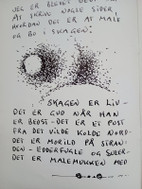 JEG ER BLEVET BEDT OM
AT SKRIVE NOGLE SIDER
HVORDAN DET ER AT MALE
OG BO I SKAGEN.
SKAGEN ER LIV-
DET ER GUD NÅR HAN
ER BEDST- DET ER ET PUST
FRA DET VILDE KOLDE NORD-
DET ER MORILD PÅ STRAN-
DEN- EDDERFUGLE OG SURER-
DET ER MALEMUKKEN MED